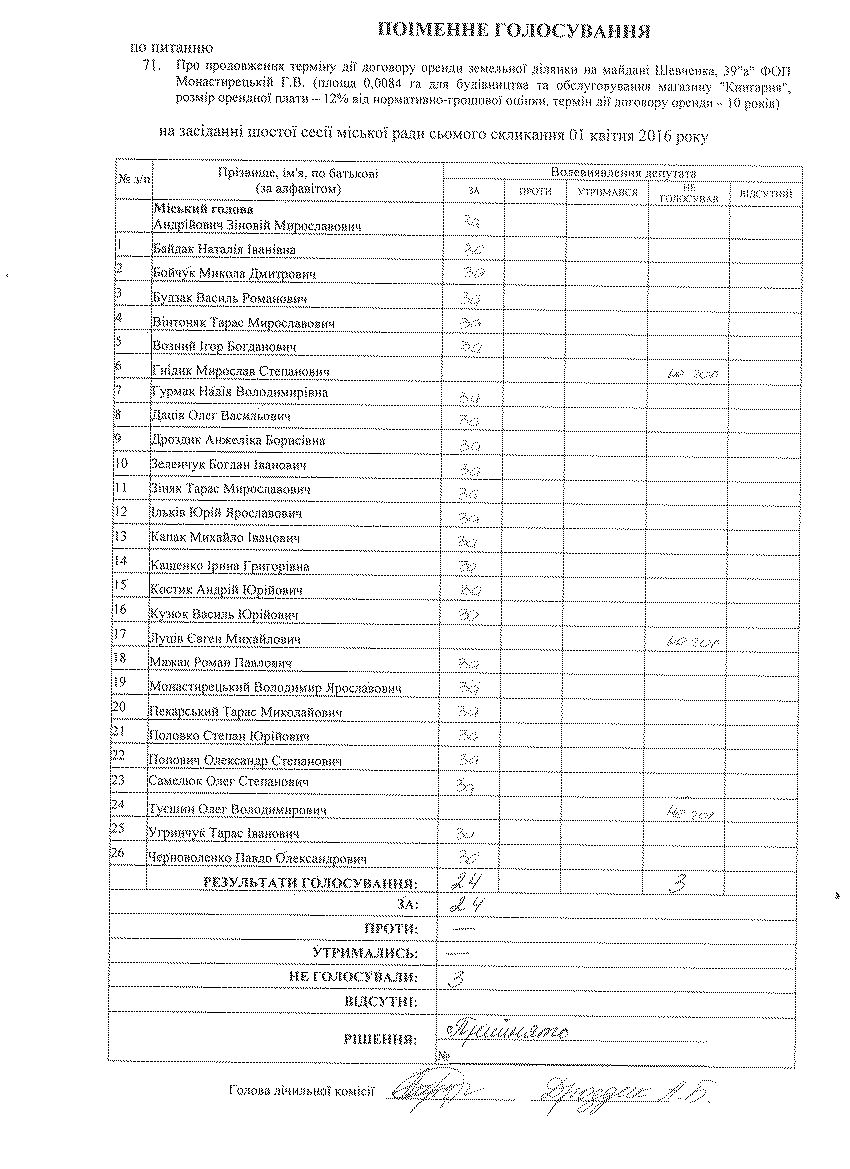 ПОІМЕННЕ ГОЛОСУВАННЯ
по питанню
71. Про продовження терміну дії договору оренди земельної ділянки на майдані Шевченка, 39"а" ФОП
Монастирецькій Г.В. (площа 0,0084 га для будівництва та обслуговування магазину "Книгарня",
розмір орендної плати – 12% від нормативно-грошової оцінки, термін дії договору оренди – 10 років)
на засіданні шостої сесії міської ради сьомого скликання 01 квітня 2016 року
№ з/п Прізвище, ім'я, по батькові Волевиявлення депутата
(за алфавітом) ЗА ПРОТИ УТРИМАВСЯ НЕ ГОЛОСУВАВ ВІДСУТНІЙ
Міський голова
Андрійович Зіновій Мирославович за
1 Байдак Наталія Іванівна за
2 Бойчук Микола Дмитрович за
3 Будзак Василь Романович за
4 Вінтоняк Тарас Мирославович за
5 Возний Ігор Богданович за
6 Гнідик Мирослав Степанович не гол
7 Гурмак Надія Володимирівна за
8 Даців Олег Васильович за
9 Дроздик Анжеліка Борисівна за
10 Зеленчук Богдан Іванович за
11 Зіняк Тарас Мирославович за
12 Ільків Юрій Ярославович за
13 Капак Михайло Іванович за
14 Кащенко Ірина Григорівна за
15 Костик Андрій Юрійович за
16 Кузюк Василь Юрійович за
17 Луців Євген Михайлович не гол
18 Мажак Роман Павлович за
19 Монастирецький Володимир Ярославович за
20 Пекарський Тарас Миколайович за
21 Половко Степан Юрійович за
22 Попович Олександр Степанович за
23 Самелюк Олег Степанович за
24 Тусшин Олег Володимирович не гол
25 Угринчук Тарас Іванович за
26 Черноволенко Павло Олександрович за
РЕЗУЛЬТАТИ ГОЛОСУВАННЯ: 24 3
ЗА: 24
ПРОТИ: —
УТРИМАЛИСЬ: —
НЕ ГОЛОСУВАЛИ: 3
ВІДСУТНІ:
РІШЕННЯ: Прийнято
№
Голова лічильної комісії Дроздик А.Б.